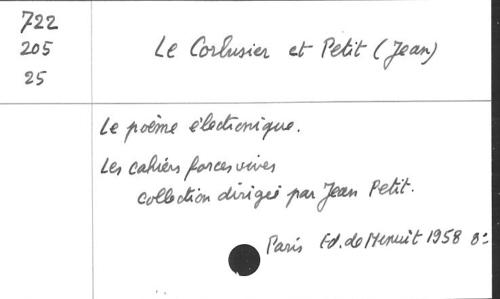 722
205
25
Le Corbusier et Petit (Jean)
Le poème électronique.
Les cahiers forces vives
collection dirigée par Jean Petit.
Paris Ed. de Minuit 1958 8º